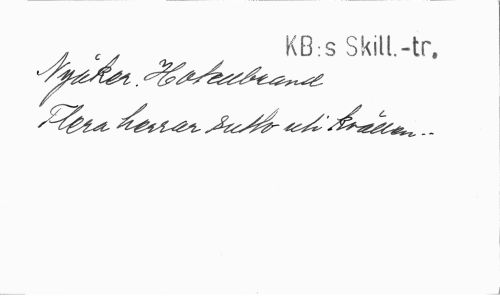 KB:s Skill.-tr.
Nyåker. Hotellbrand
Flera herrar sutto uti kvällen..